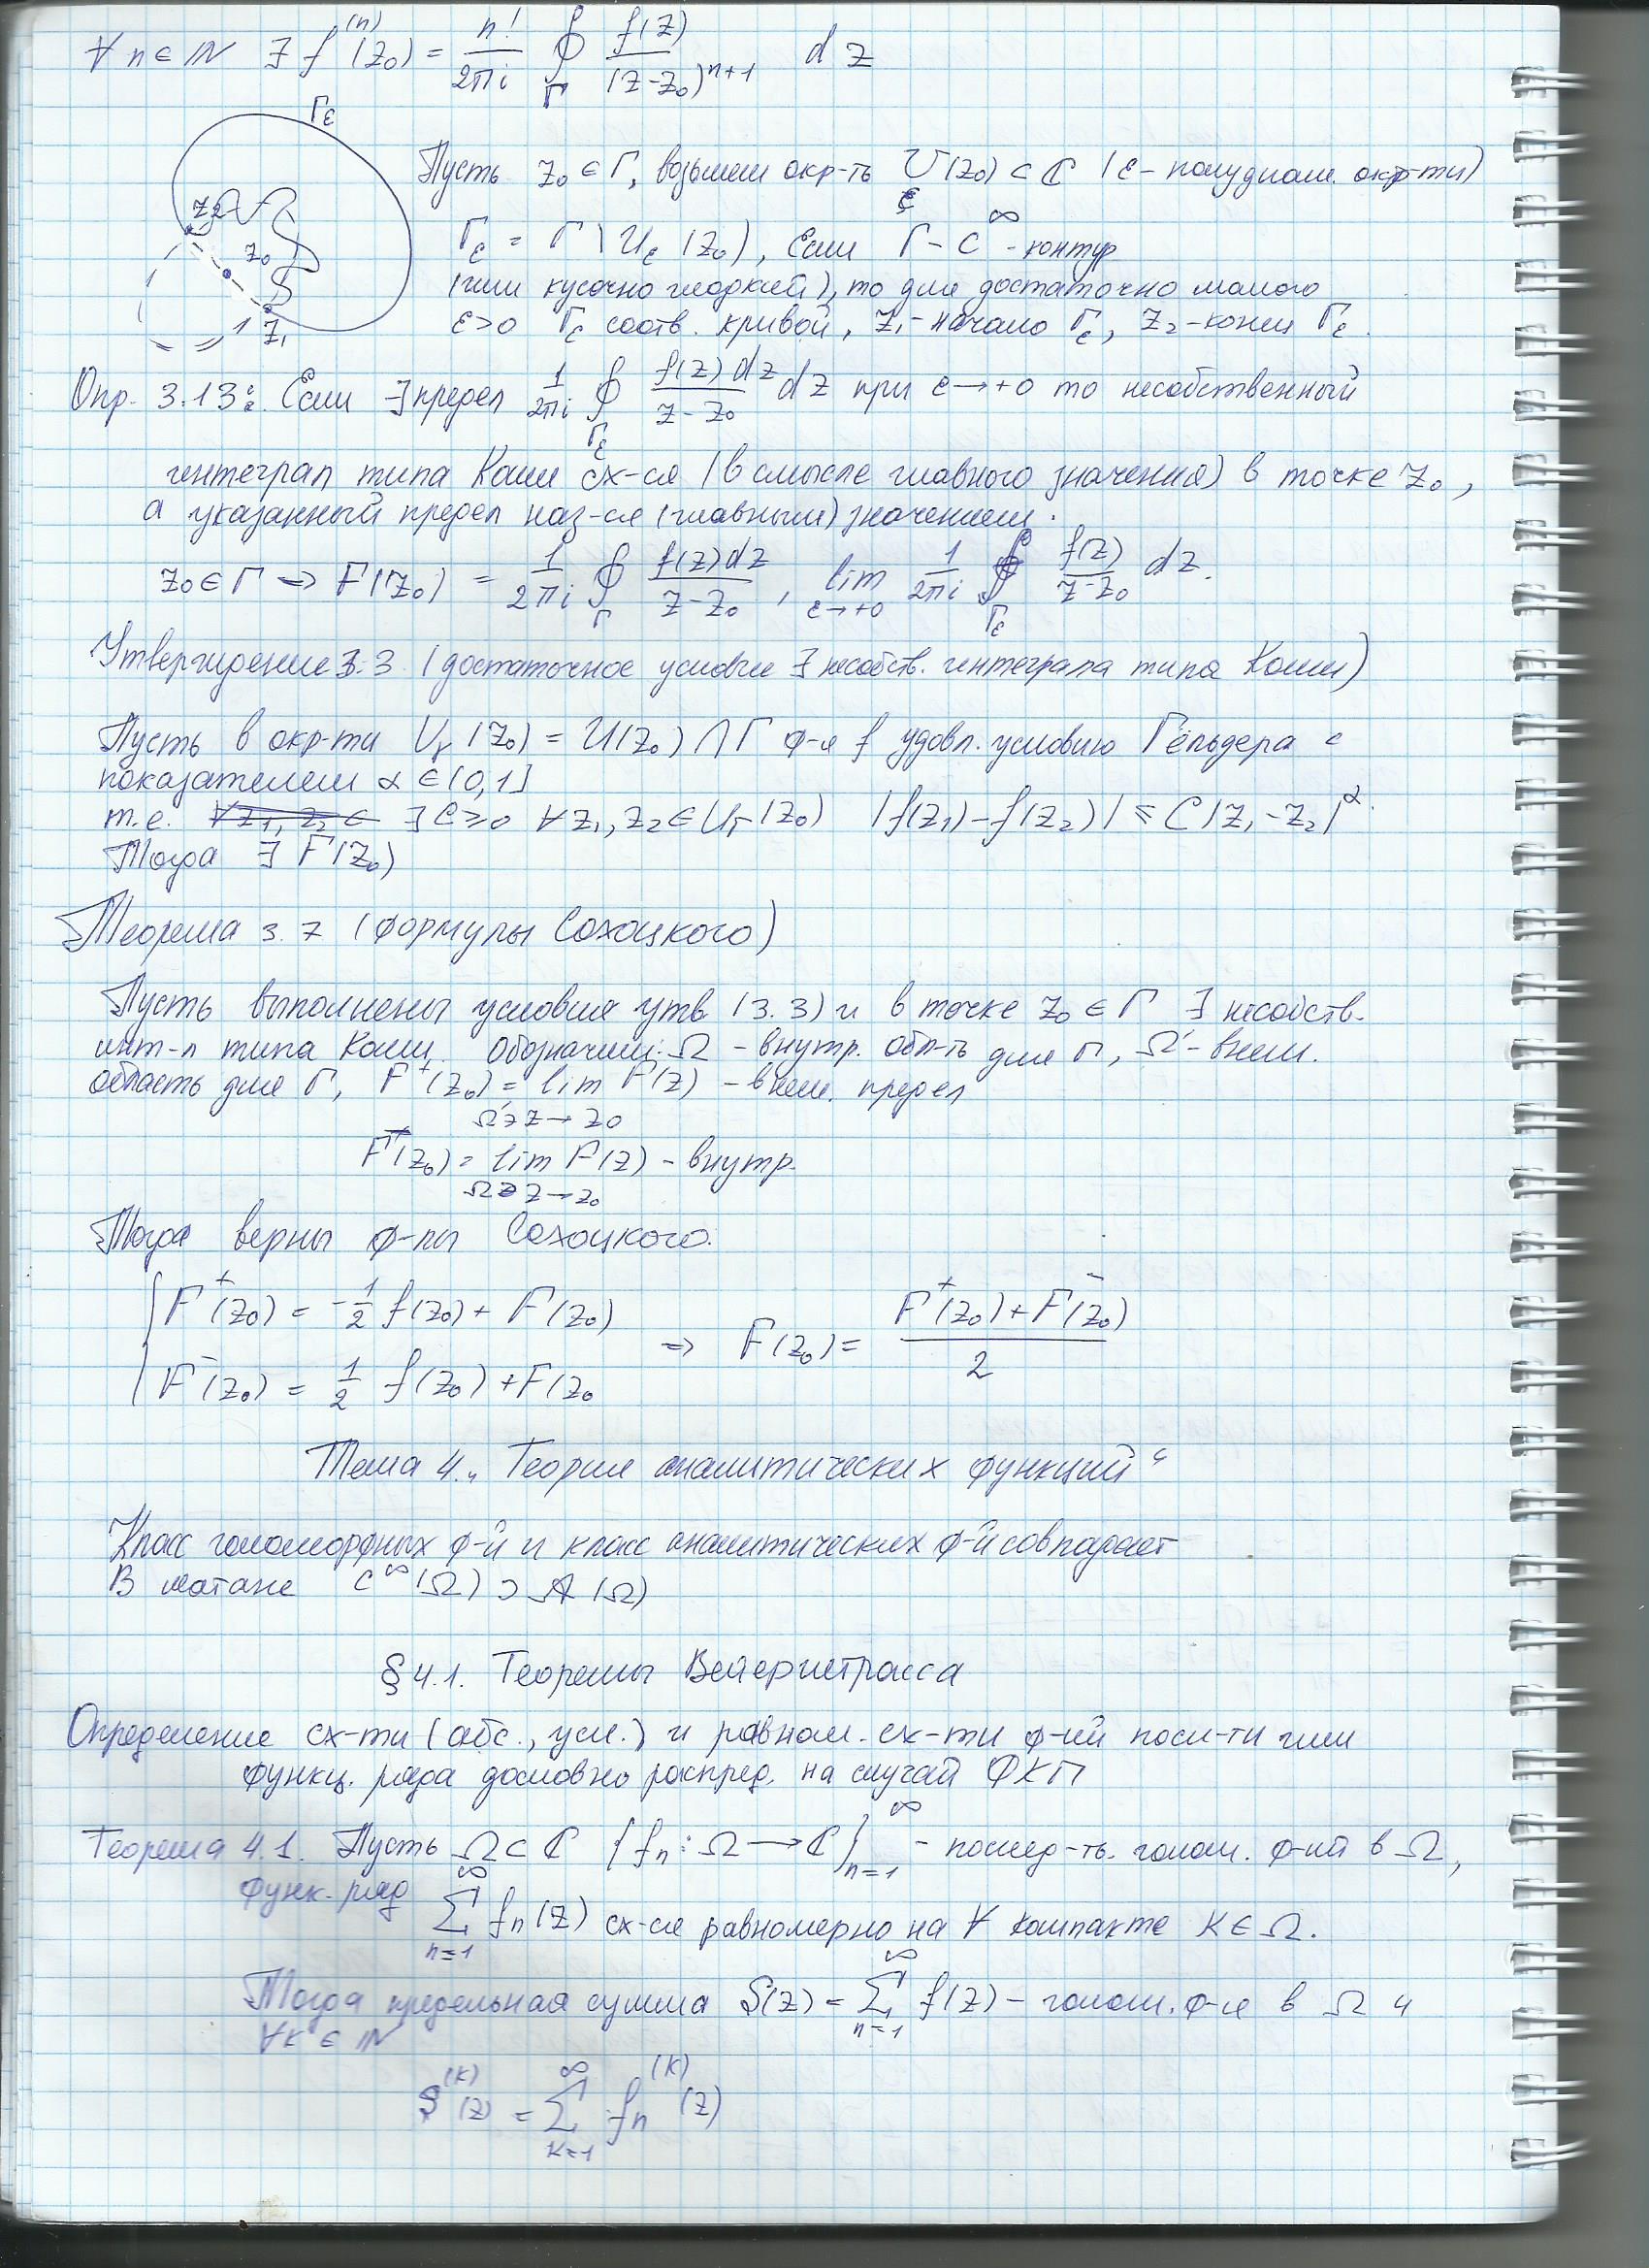 ∀ n ∈ ℕ ∃ f⁽ⁿ⁾(z₀) = n!/2πi ∮_Γ f(z)/(z-z₀)ⁿ⁺¹ dz
Γε
Пусть z₀ ∈ Γ, возьмем окр-ть U_ε(z₀) ⊂ ℂ (ε - полудиам. окр-ти)
z₂
Γε = Γ \ Uε(z₀), Если Γ - C^∞ - контур
z₀
(или кусочно гладкий), то для достаточно малого
ε>0 Γε соотв. кривой, z₁ - начало Γε, z₂ - конец Γε.
z₁
Опр. 3.13: Если ∃ предел 1/2πi ∮_Γε f(z)dz/z-z₀ dz при ε→+0 то несобственный
интеграл типа Коши сх-ся (в смысле главного значения) в точке z₀,
а указанный предел наз-ся (главным) значением.
z₀ ∈ Γ ⇒ F(z₀) = 1/2πi ∮_Γ f(z)dz/z-z₀ , lim_ε→+0 1/2πi ∮_Γε f(z)/z-z₀ dz.
Утверждение 3.3 (достаточное условие ∃ несобств. интеграла типа Коши)
Пусть в окр-ти U_Γ(z₀) = U(z₀) ∩ Γ ф-я f удовл. условию Гёльдера с
показателем α ∈ (0,1]
т.е. ∀z₁, z₂ ∈ ∃ C ≥ 0 ∀ z₁, z₂ ∈ U_Γ(z₀) |f(z₁) - f(z₂)| ≤ C|z₁ - z₂|^α.
Тогда ∃ F(z₀)
Теорема 3.7 (формулы Сохоцкого)
Пусть выполнены условия утв (3.3) и в точке z₀ ∈ Γ ∃ несобств.
инт-л типа Коши. Обозначим: Ω - внутр. обл-ть для Γ, Ω' - внеш.
область для Γ, F⁺(z₀) = lim_Ω'∋z→z₀ F(z) - внеш. предел
F⁻(z₀) = lim_Ω∋z→z₀ F(z) - внутр.
Тогда верны ф-лы Сохоцкого.
{ F⁺(z₀) = -1/2 f(z₀) + F(z₀) ⇒ F(z₀) = F⁺(z₀) + F⁻(z₀)/2
F⁻(z₀) = 1/2 f(z₀) + F(z₀
Тема 4. „Теория аналитических функций“
Класс голоморфных ф-й и класс аналитических ф-й совпадает
В матане C^∞(Ω) ⊃ A(Ω)
§4.1. Теоремы Вейерштрасса
Определение сх-ти (абс., усл.) и равном. сх-ти ф-ий посл-ти или
функц. ряда дословно распред. на случай ФКП
Теорема 4.1. Пусть Ω ⊂ ℂ {fₙ : Ω → ℂ}_n=1^∞ - послед-ть. голом. ф-ий в Ω,
функ. ряд ∑_n=1^∞ fₙ(z) сх-ся равномерно на ∀ компакте K ∈ Ω.
Тогда предельная сумма S(z) = ∑_n=1^∞ f(z) - голом. ф-я в Ω и
∀k ∈ ℕ
S⁽ᵏ⁾(z) = ∑_k=1^∞ fₙ⁽ᵏ⁾(z)